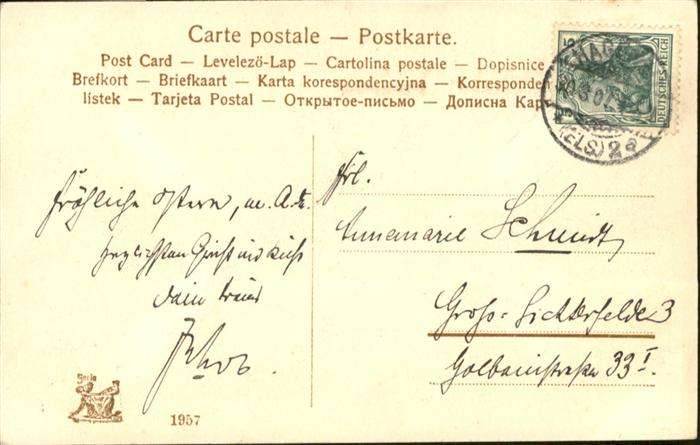 Carte postale — Postkarte.
Post Card — Levelező-Lap — Cartolina postale — Dopisnice
Brefkort — Briefkaart — Karta korespondencyjna — Korresponden
lístek — Tarjeta Postal — Открытое-письмо — Дописна Кар
DEUTSCHES REICH
HAGE
(ELS) 2 a
Fröhliche Ostern, m. A.
herzlichsten Gruß und Kuß
Dein treuer
Frl.
Annemarie Schmidt,
Gross-Lichterfelde 3
Holbeinstraße 33 I.
Serie
1957